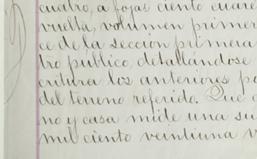 cuatro, a fojas ciento cuare
vuelta, volumen primer
ce de la sección primera
tro público, detallándose
critura los anteriores po
del terreno referido. Que
no y casa mide una su
mil ciento veintiuna v